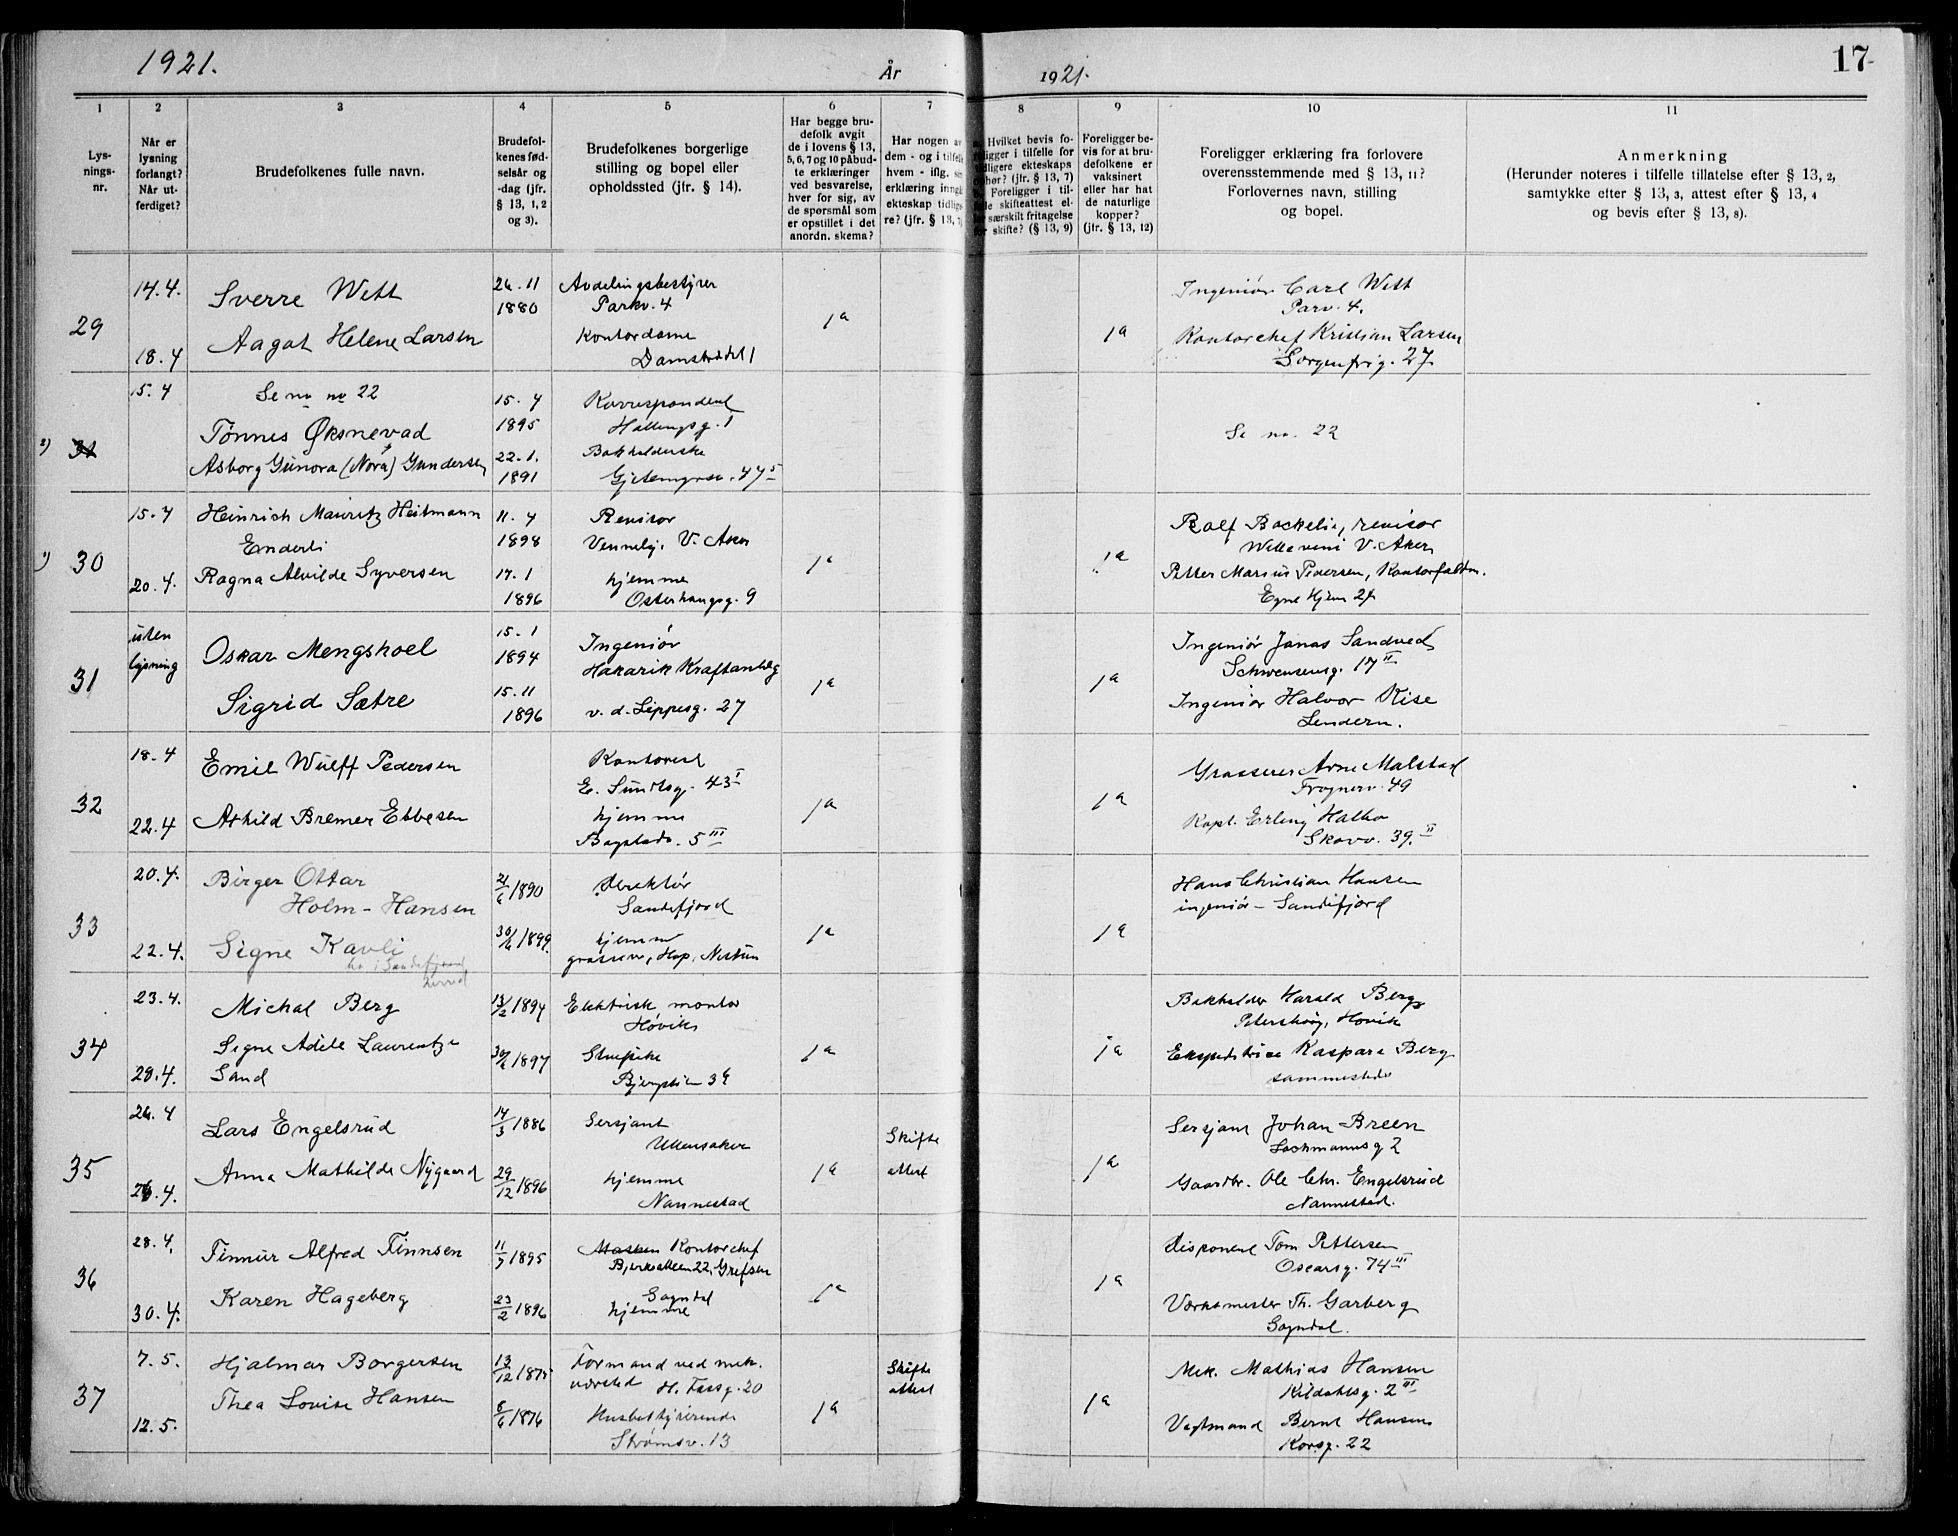 1921.
År
1921.
17
1
2
3
4
5
6
7
8
9
10
11
Lys-
nings-
nr.
Når er
lysning
forlangt?
Når ut-
ferdiget?
Brudefolkenes fulle navn.
Brudefol-
kenes fød-
selsår og
-dag (jfr.
§ 13, 1, 2
og 3).
Brudefolkenes borgerlige
stilling og bopel eller
opholdssted (jfr. § 14).
Har begge bru-
defolk avgit
de i lovens § 13,
5, 6, 7 og 10 påbud-
te erklæringer
ved besvarelse,
hver for sig, av
de spørsmål som
er opstillet i det
anordn. skema?
Har nogen av
dem - og i tilfelle
hvem - iflg. sin
erklæring inngå
ekteskap tidlig
re? (jfr. § 13, 7
Hvilket bevis fo-
religger i tilfelle for
tidligere ekteskaps
ophør? (jfr. § 13, 7)
Foreligger i til-
felle skifteattest el-
særskilt fritagelse
for skifte? (§ 13, 9)
Foreligger be-
vis for at bru-
defolkene er
vaksinert
eller har hat
de naturlige
kopper?
(jfr. § 13, 12)
Foreligger erklæring fra forlovere
overensstemmende med § 13, 11?
Forlovernes navn, stilling
og bopel.
Anmerkning
(Herunder noteres i tilfelle tillatelse efter § 13, 2,
samtykke efter § 13, 3, attest efter § 13, 4
og bevis efter § 13, 8).
29
14.4.
18.4
Sverre Wett
Aagot Helene Larsen
26.11
1880
Avdelingsbestyrer
Parkv. 4
Kontordame
Damstrædet 1
ja
ja
Ingeniør Carl Wett
Parv. 4.
Kontorchef Kristian Larsen
Sorgenfrig. 27
2)
31
15.4
Se no 22
Tønnes Øksnevad
Asborg Gunora (Nora) Gundersen
15.4
1895
22.1.
1891
Korrespondent
Hallingsg. 1
Bokholderske
Se no. 22
1)
30
15.4
20.4.
Heinrich Mauritz Heitmann
Enderli
Ragna Alvilde Syversen
11.4
1898
17.1
1896
Revisor
V. Aker
hjemme
Osterhausg. 9
ja
ja
Rolf Bockelie, revisor
V. Aker
Petter Marius Pedersen, Kontorfuldm.
Egne Hjem 24
31
uten
lysning
Oskar Mengshoel
Sigrid Sætre
15.1
1894
15.11
1896
Ingeniør
Hakavik Kraftanlæg
v. d. Lippesg. 27
ja
ja
Ingeniør Jonas Sandved
Schwensensg. 17 II
Ingeniør Halvor Kise
Lendern.
32
18.4
22.4
Emil Wulff Pedersen
Athild Bremer Ebbesen
Kontorist
E. Sundtsg. 43 I
hjemme
Bogstadv. 5 III
ja
ja
Grosserer Arne Malstad
Frognerv. 49
Kapt. Erling Halbo
Skovv. 39. II
33
20.4.
22.4.
Birger Ottar
Holm-Hansen
Signe Kavli
21/6 1890
30/6 1899.
direktør
Sandefjord
hjemme
Hop, Nestun
ja
ja
Hans Christian Hansen
ingeniør - Sandefjord
34
23.4.
28.4.
Michal Berg
Signe Adele Laurentze
Sand
13/2 1894
Elektrisk montør
Høvik
Stuepike
ja
ja
Bokholder Harald Berg
Høvik
Ekspeditrice Kaspara Berg
sammesteds
35
26.4
Lars Engelsrud
Anna Mathilde Nygaard
14/3 1886
29/12 1896
Sersjant
Ullensaker
hjemme
Nannestad
ja
Skifte
attest
ja
Sersjant Johan Breen
Lochmannsg 2
Gaardbr. Ole Chr. Engelsrud
Nannestad.
36
28.4.
30.4.
Finnur Alfred Finnsen
Karen Hageberg
11/7 1895
23/2 1896
Kontorchef
Bjerkealleen 22, Grefsen
Sogndal
hjemme
ja
ja
disponent Tom Pettersen
Oscarsg. 74 III
Verksmester Th. Garberg
Sogndal.
37
7.5.
12.5.
Hjalmar Borgersen
Thea Lovise Hansen
13/12 1875
8/6 1876
Formand ved mek.
verksted H. Fossg. 20
Husbestyrerinde
Strømsv. 13
ja
Skifte
attest
ja
Mek. Mathias Hansen
Kildahlsg. 2 III
Vagtmand Bernt Hansen
Korsg. 22